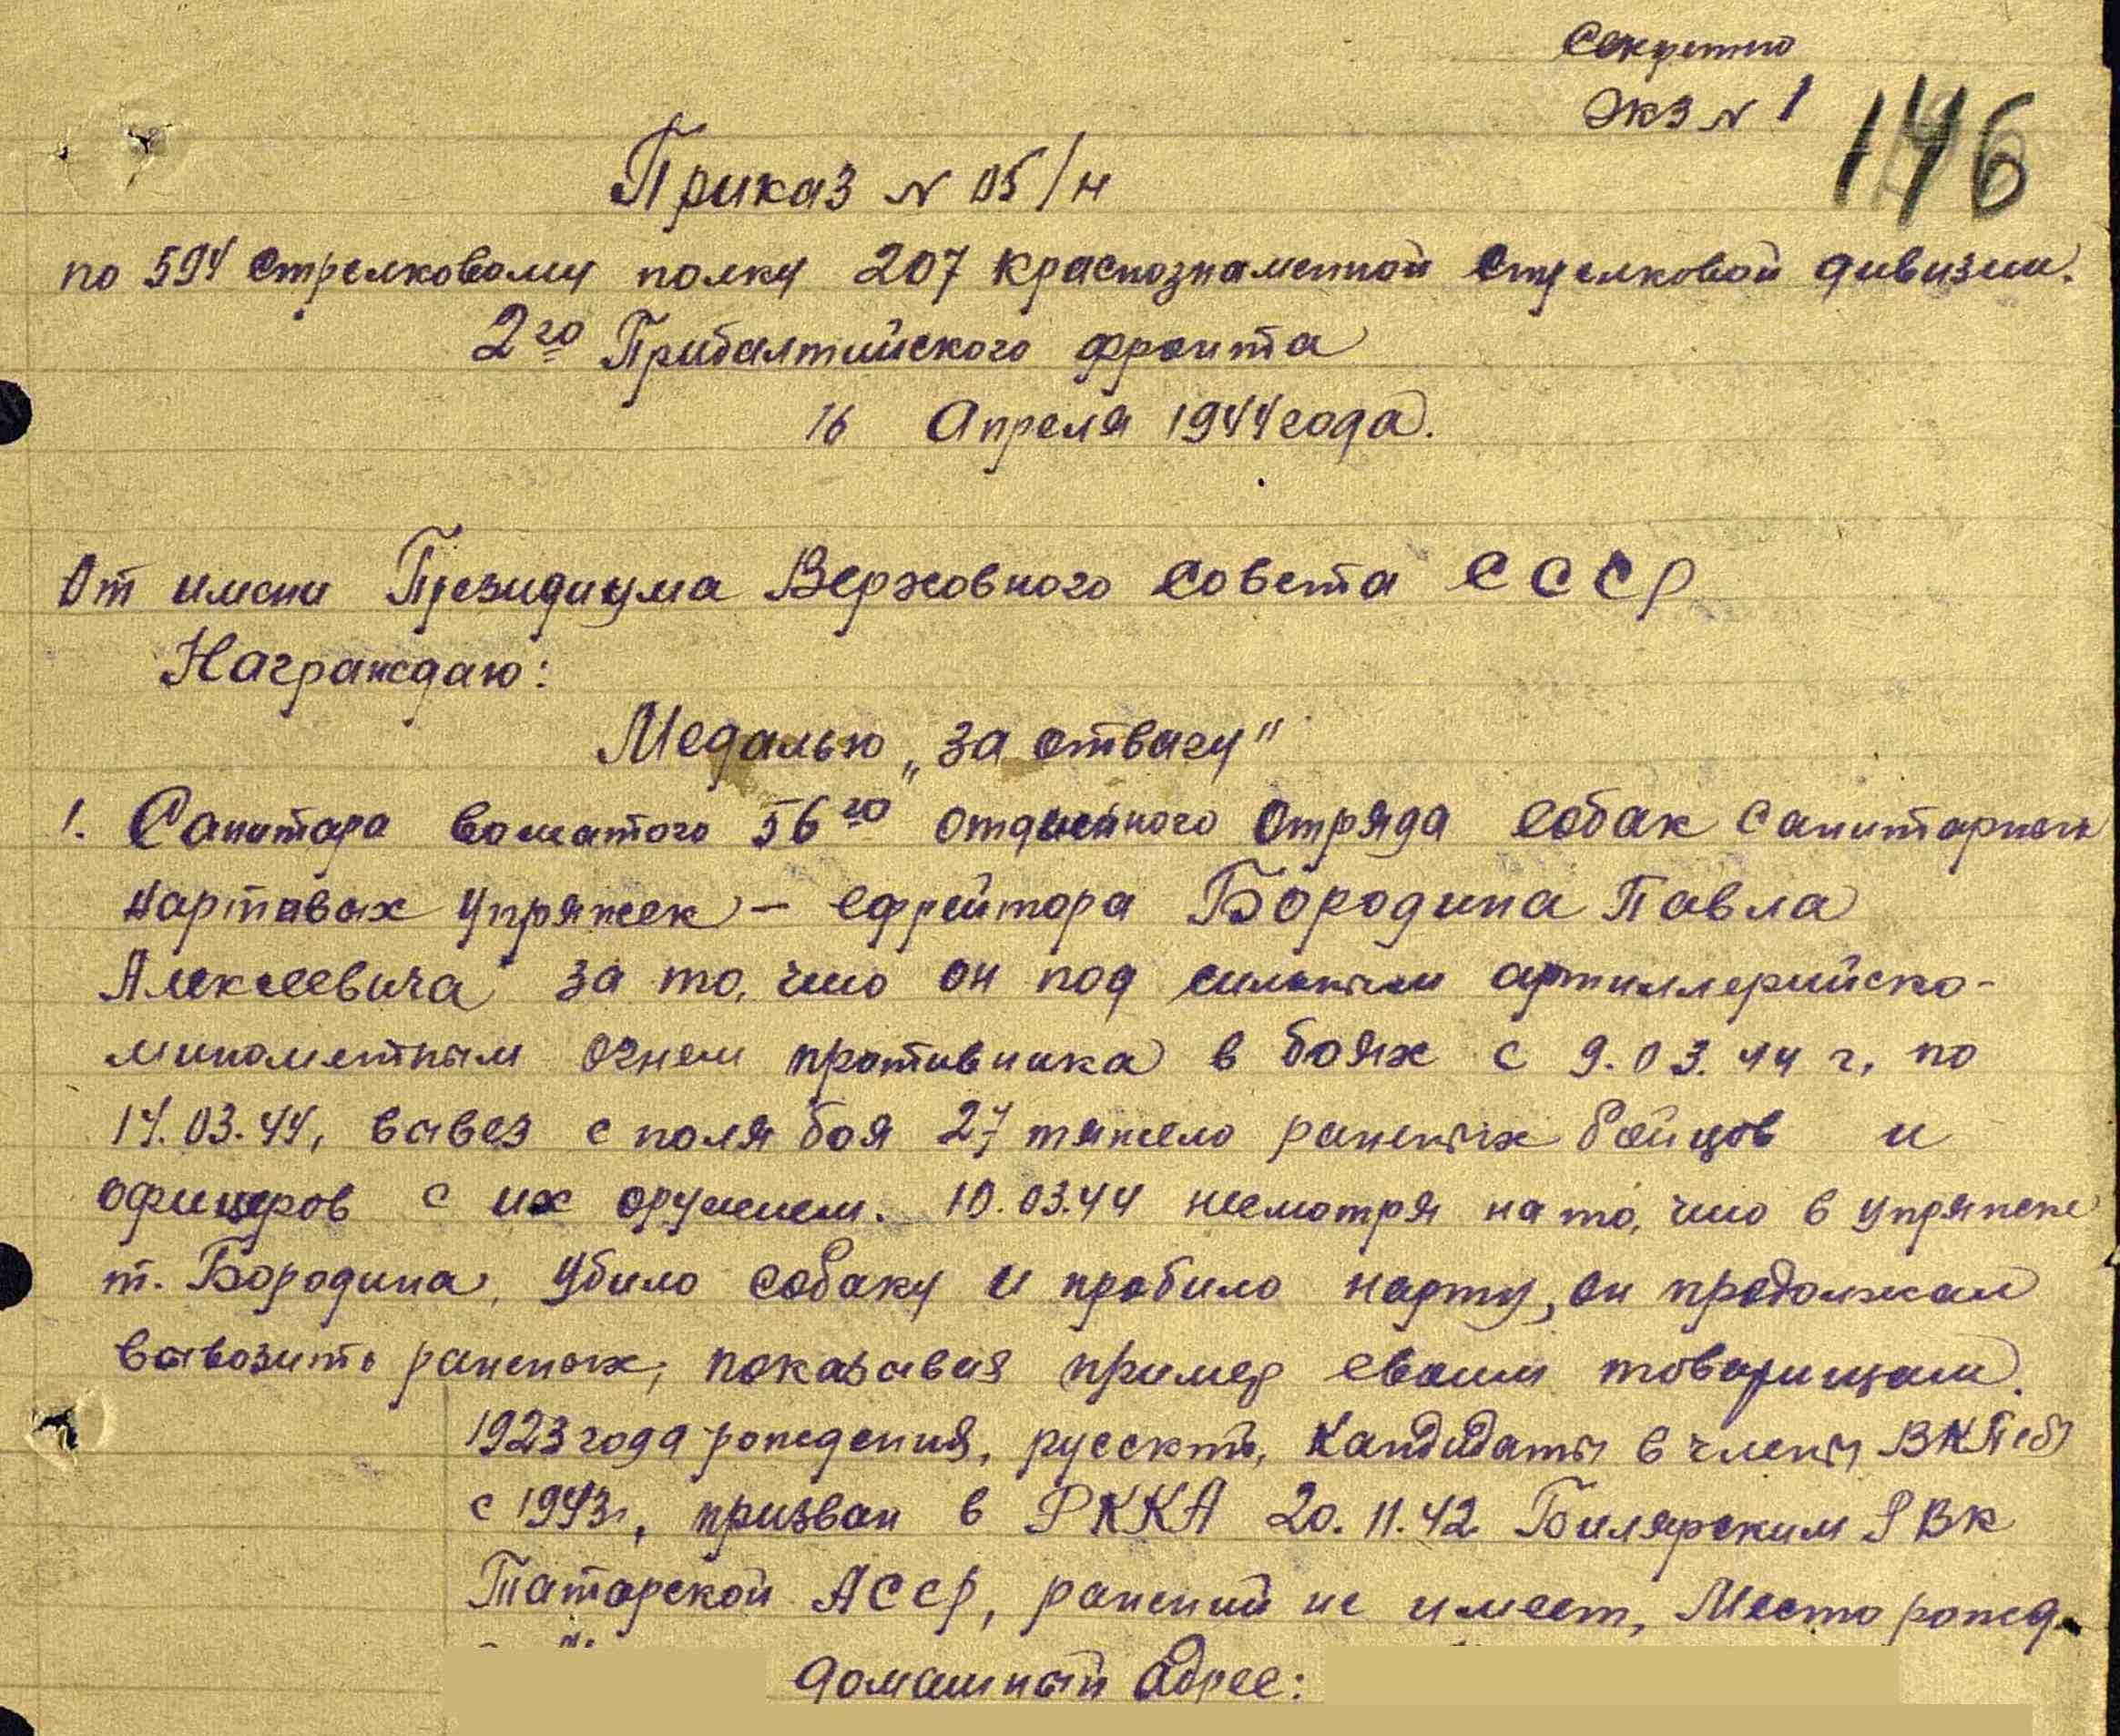 Секретно
Экз № 1
146
Приказ № 05/н
по 594 Стрелковому полку 207 Краснознаменной Стрелковой дивизии.
2го Прибалтийского фронта
16 Апреля 1944 года.
От имени Президиума Верховного Совета СССР
Награждаю:
Медалью „За отвагу"
1. Санитара вожатого 56го отдельного Отряда собак санитарных
нартовых упряжек – ефрейтора Бородина Павла
Алексеевича за то, что он под сильным артиллерийско-
минометным огнем противника в боях с 9.03.44 г. по
14.03.44, вывез с поля боя 27 тяжело раненых бойцов и
офицеров с их оружием. 10.03.44 несмотря на то, что в упряжке
т. Бородина, убило собаку и пробило нарту, он продолжал
вывозить раненых, показывая пример своим товарищам.
1923 года рождения, русский, Кандидаты в члены ВКП(б)
с 1943г., призван в РККА 20.11.42 Билярским РВК
Татарской АССР, ранений не имеет, Место рожд.
домашный Адрес: